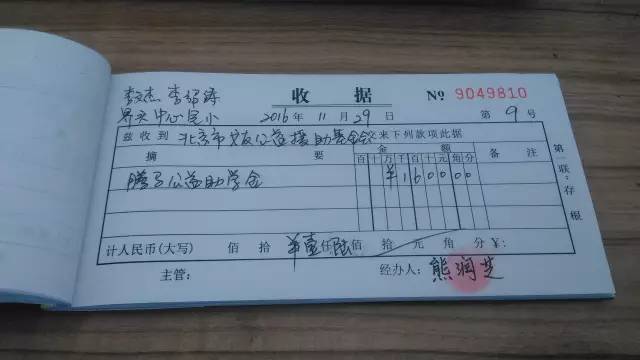 李文杰 李绍涛
界头中心完小
收据 № 9049810
2016年11月29日 第9号
兹收到 北京市 公益援助基金会 交来下列款项此据
摘要 金额 备注
百十万千百十元角分
腾马公益助学金 ¥160000
计人民币(大写) 佰 拾 ¥壹仟陆佰 拾 元 角 分 ¥:
主管: 经办人: 熊润芝
第一联:存根